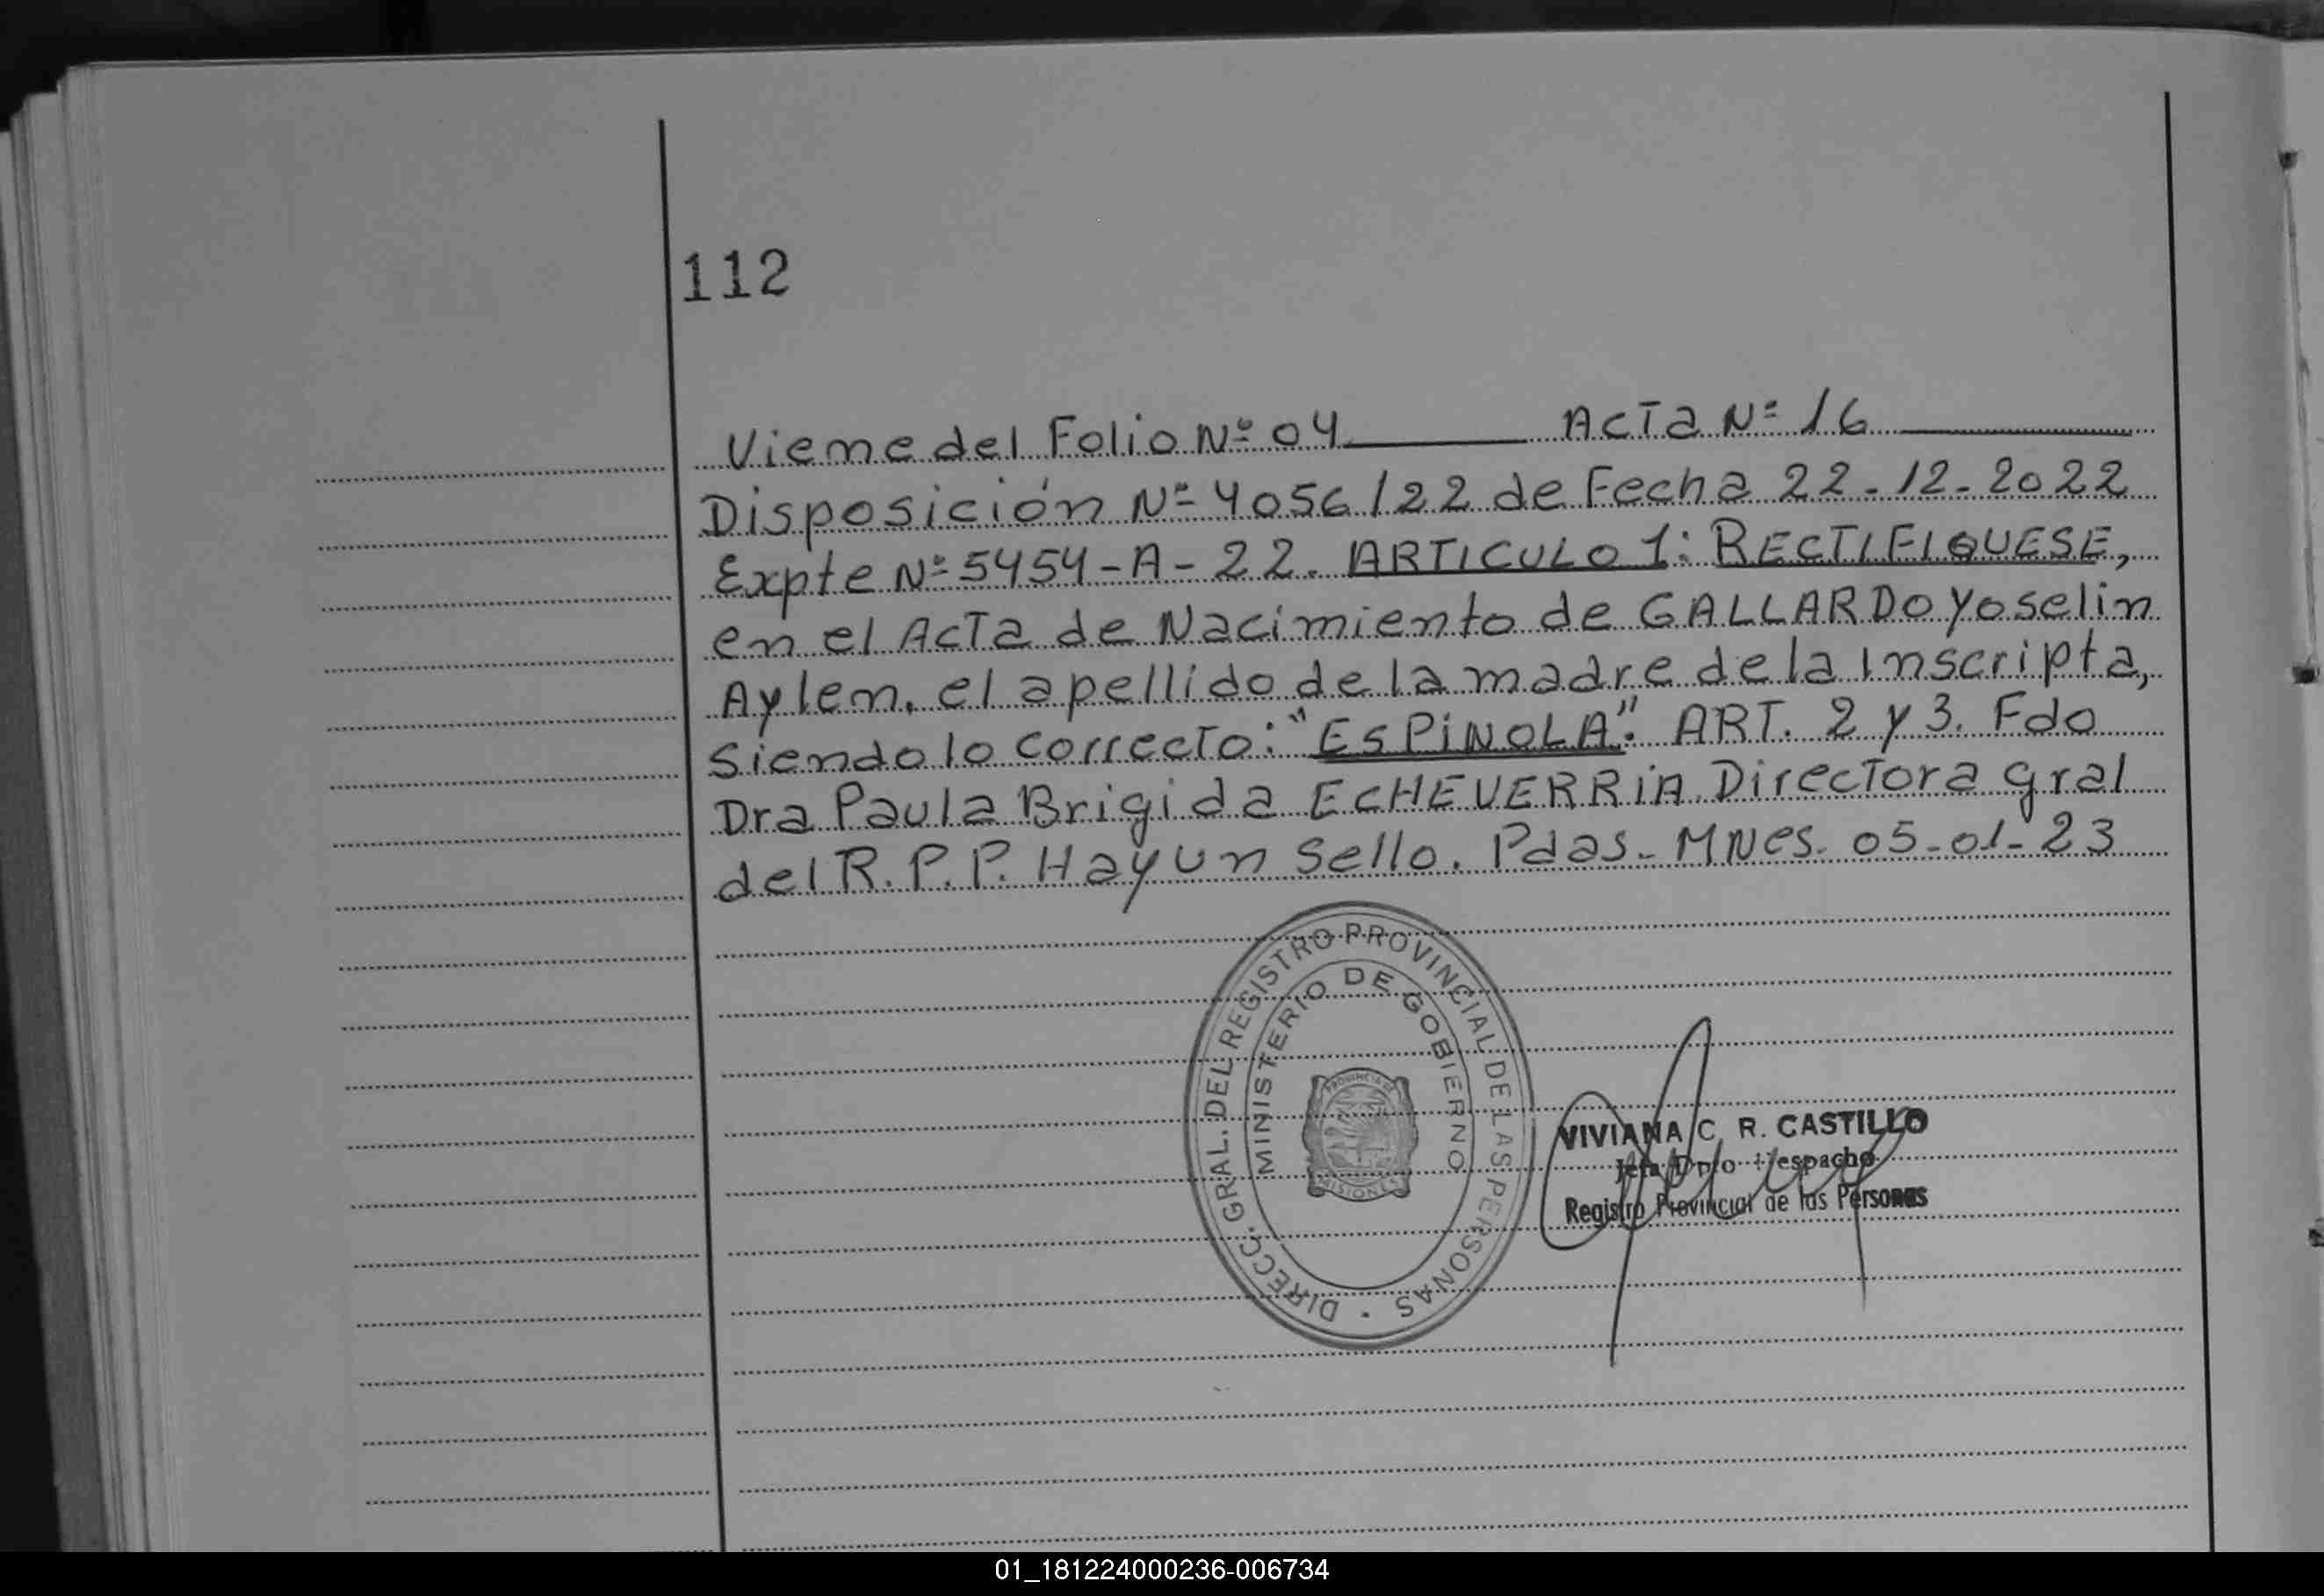 112
Viene del Folio Nº 04 Acta Nº 16
Disposición Nº 4056/22 de Fecha 22-12-2022
Expte Nº 5454-A-22. ARTICULO 1: RECTIFIQUESE,
en el Acta de Nacimiento de GALLARDO Yoselin
Aylen, el apellido de la madre de la Inscripta,
siendo lo correcto: "ESPíNOLA". ART. 2 y 3. Fdo
Dra Paula Brigida ECHEVERRíA. Directora gral
del R.P.P. Hay un Sello. Pdas- MNes. 05-01-23
DIRECC. GRAL. DEL REGISTRO PROVINCIAL DE LAS PERSONAS
MINISTERIO DE GOBIERNO
PROVINCIA DE
MISIONES
VIVIANA C. R. CASTILLO
Jefa Dpto Despacho
Registro Provincial de las Personas
01_181224000236-006734